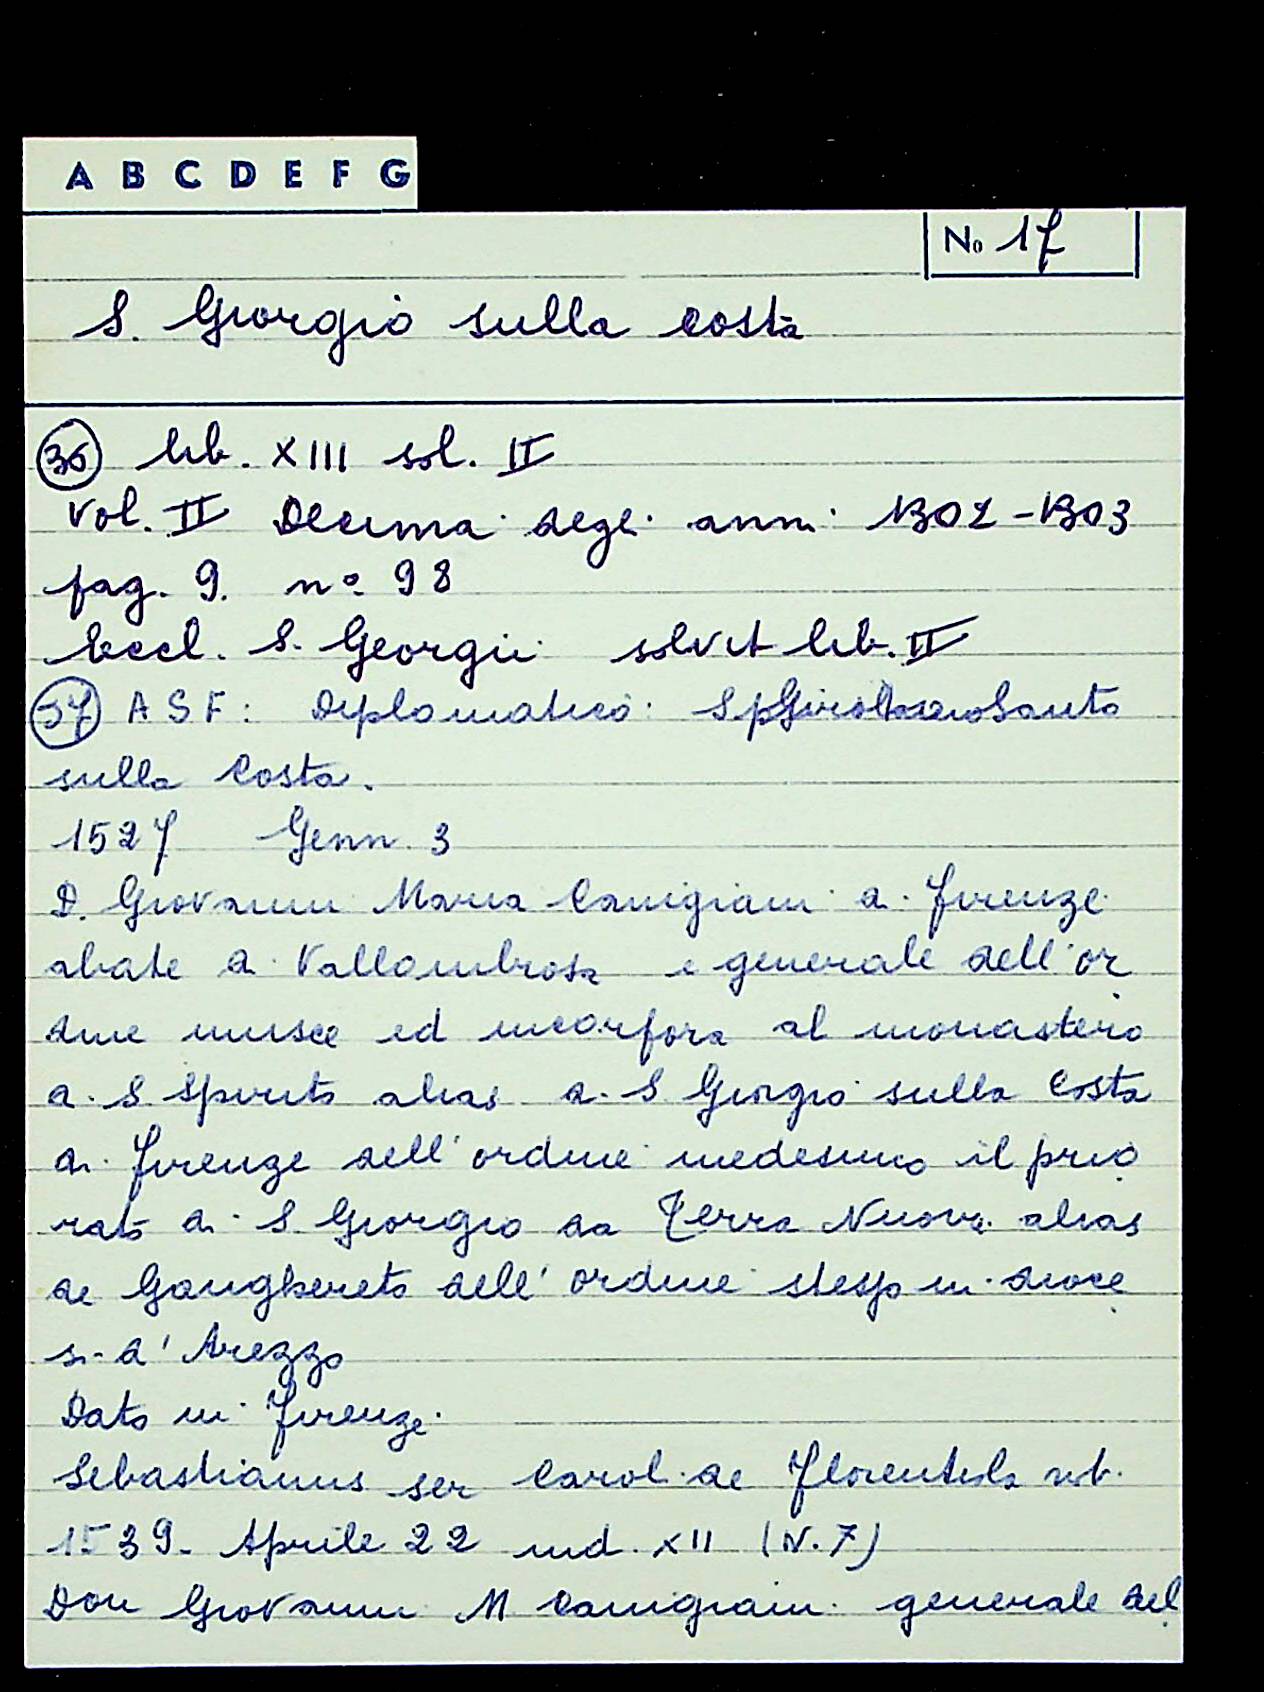 A B C D E F G
No 17
S. Giorgio sulla Costa
36 lib. XIII sol. II
Vol. II Decima degli anni 1302-1303
pag. 9. n° 98
Eccl. S. Georgii solvit lib. II
37 ASF: Diplomatico: Santo
sulla Costa.
1527 Genn. 3
D. Giovanni Maria Canigiani di Firenze
abate di Vallombrosa e generale dell'or
dine unisce ed incorpora al monastero
di S. Spirito alias di S Giorgio sulla Costa
di Firenze dell'ordine medesimo il prio
rato di S. Giorgio da Terra Nuova alias
de Ganghereto dell'ordine stesso in dioce
si d'Arezzo
Dato in Firenze.
Sebastianus ser Carol. de Florentiola not.
1539. Aprile 22 ind. XII (N. 7)
Don Giovanni M Canigiani generale del